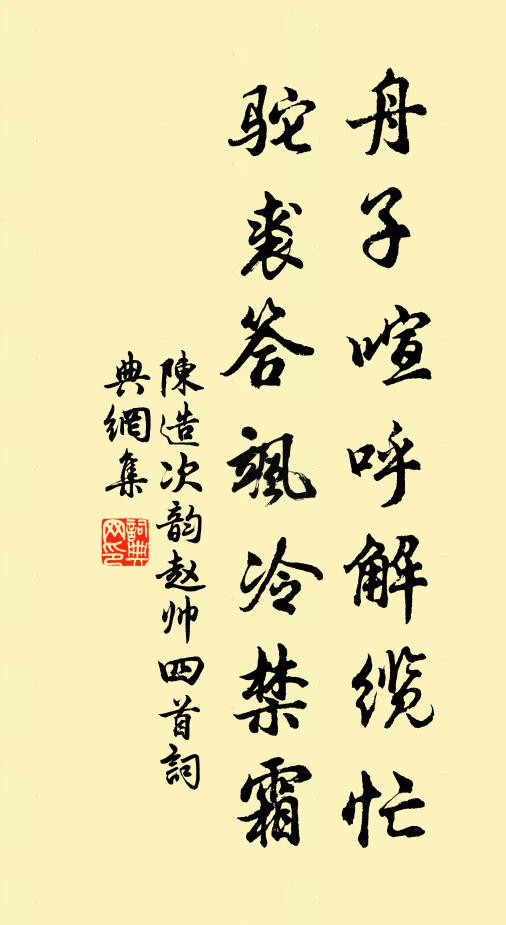 舟子喧呼解缆忙
驼裘答飒冷禁霜
陳造次韵赵帅四首詞
典網集
詞典
网印